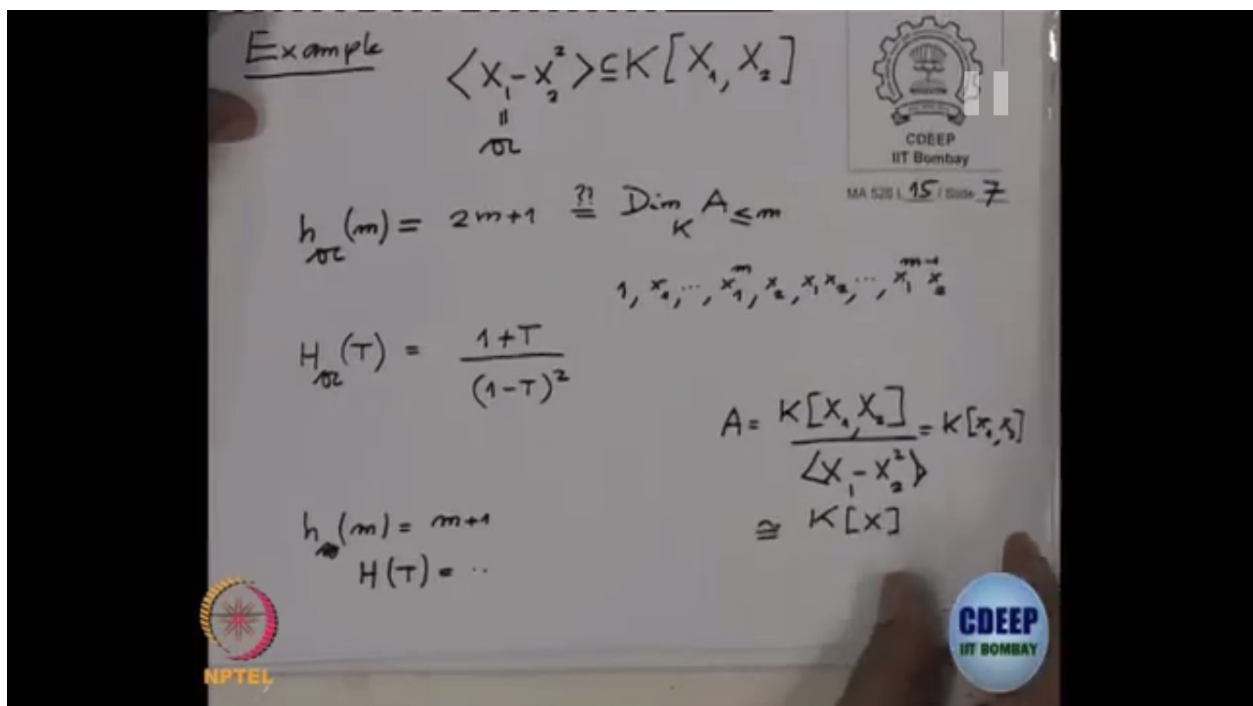 Example
⟨X₁ - X₂²⟩ ⊆ K[X₁, X₂]
||
𝔞
CDEEP
IIT Bombay
MA 526 L 15 / Slide 7
h_𝔞(m) = 2m+1 ≟?? Dim_K A_≤m
1, x₁, ..., x₁^m, x₂, x₁x₂, ..., x₁^(m-1) x₂
H_𝔞(T) = (1+T)/(1-T)²
A = K[X₁, X₂]/⟨X₁ - X₂²⟩ = K[x₁, x₂]
≅ K[X]
h (m) = m+1
H(T) = ..
NPTEL
CDEEP
IIT BOMBAY